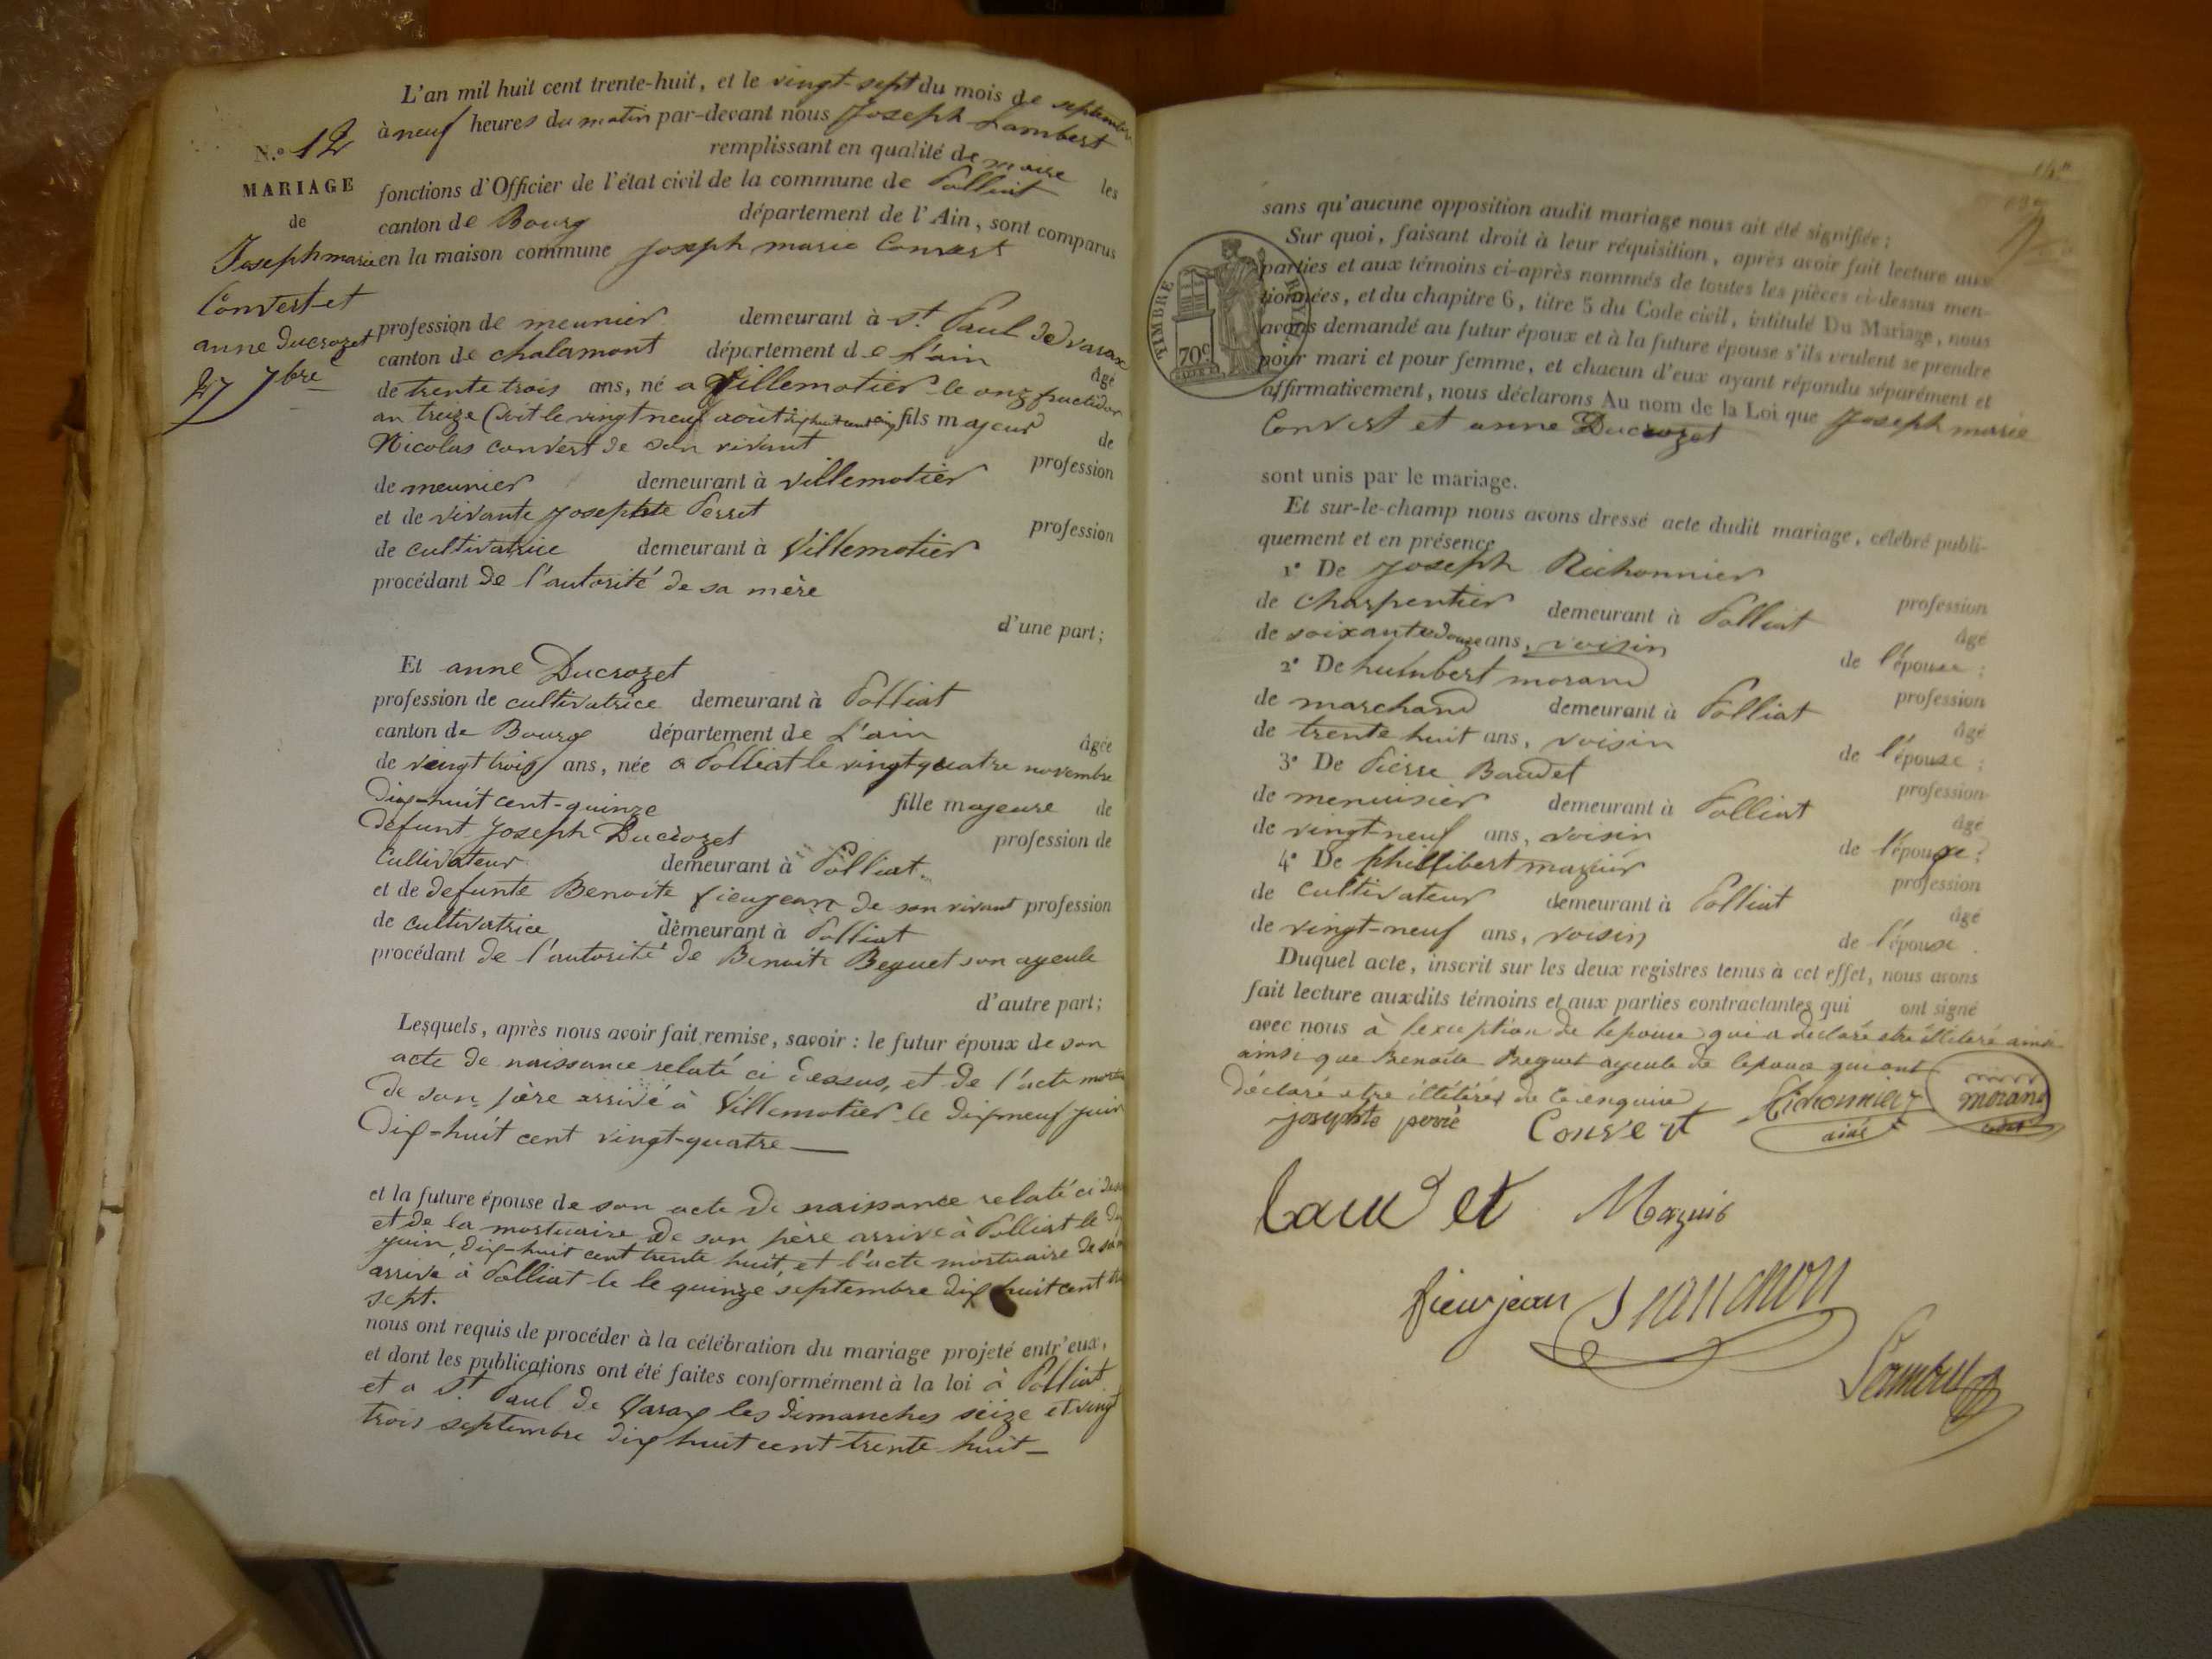 N.o 12
MARIAGE
de
Joseph marie
Convert et
anne Ducrozet
27 7bre
L'an mil huit cent trente-huit, et le vingt-sept du mois de septembre
à neuf heures du matin par-devant nous Joseph Lambert
remplissant en qualité de maire les
fonctions d'Officier de l'état civil de la commune de Polliat
canton de Bourg département de l'Ain, sont comparus
en la maison commune Joseph marie Convert
profession de meunier demeurant à St. Paul de varax
canton de chalamont département de L'ain âgé
de trente trois ans, né a Villemotier le onz fructidor
an treize (soit le vingt neuf août dix huit cent cinq fils majeur de
Nicolas convert de son vivant profession
de meunier demeurant à villemotier
et de vivante Josephte Perret profession
de cultivatrice demeurant à Villemotier
procédant de l'autorité de sa mère
d'une part;
Et anne Ducrozet
profession de cultivatrice demeurant à Polliat
canton de Bourg département de L'ain âgée
de vingt trois ans, née a Polliat le vingt quatre novembre
dix-huit cent-quinze fille majeure de
defunt Joseph Ducrozet profession de
cultivateur demeurant à Polliat
et de defunte Benoite fieujean de son vivant profession
de cultivatrice demeurant à Polliat
procédant de l'autorité de Benoite Beguet son ayeule
d'autre part;
Lesquels, après nous avoir fait remise, savoir: le futur époux de son
acte de naissance relaté ci dessus, et de l'acte
de son père arrivé à Villemotier le dix neuf juin
Dix-huit cent vingt-quatre —
et la future épouse de son acte de naissance relaté ci
et de la mortuaire de son père arrivé à Polliat le
juin, dix-huit cent trente huit, et l'acte mortuaire de
arrivé à Polliat le le quinze septembre dix huit cent
sept.
nous ont requis de procéder à la célébration du mariage projeté entr'eux,
et dont les publications ont été faites conformément à la loi à Polliat
et a St. Paul de Varax les dimanches seize et vingt
trois septembre dix huit cent trente huit —
TIMBRE ROYAL
70c
sans qu'aucune opposition audit mariage nous ait été signifiée;
Sur quoi, faisant droit à leur réquisition, après avoir fait lecture aux
parties et aux témoins ci-après nommés de toutes les pièces ci-dessus men-
tionnées, et du chapitre 6, titre 5 du Code civil, intitulé Du Mariage, nous
avons demandé au futur époux et à la future épouse s'ils veulent se prendre
pour mari et pour femme, et chacun d'eux ayant répondu séparément et
affirmativement, nous déclarons Au nom de la Loi que Joseph marie
Convert et anne Ducrozet
sont unis par le mariage.
Et sur-le-champ nous avons dressé acte dudit mariage, célébré publi-
quement et en présence
1° De Joseph Richonnier profession
de charpentier demeurant à Polliat âgé
de soixante douze ans, voisin de l'épouse;
2° De humbert morand profession
de marchand demeurant à Polliat âgé
de trente huit ans, voisin de l'épouse;
3° De Pierre Baudet profession
de menuisier demeurant à Polliat âgé
de vingt-neuf ans, voisin de l'épouse;
4° De phillibert mazuir profession
de cultivateur demeurant à Polliat âgé
de vingt-neuf ans, voisin de l'épouse.
Duquel acte, inscrit sur les deux registres tenus à cet effet, nous avons
fait lecture auxdits témoins et aux parties contractantes qui ont signé
avec nous à l'exception de lepouse qui a declaré etre illiteré
ainsi que Benoite Beguet ayeule de lepouse qui ont
déclaré etre illitérés de ce enquise
josephte perré Convert Richonnier morand
ainé cadet
baudet Mazuir
fieujean
Lambert